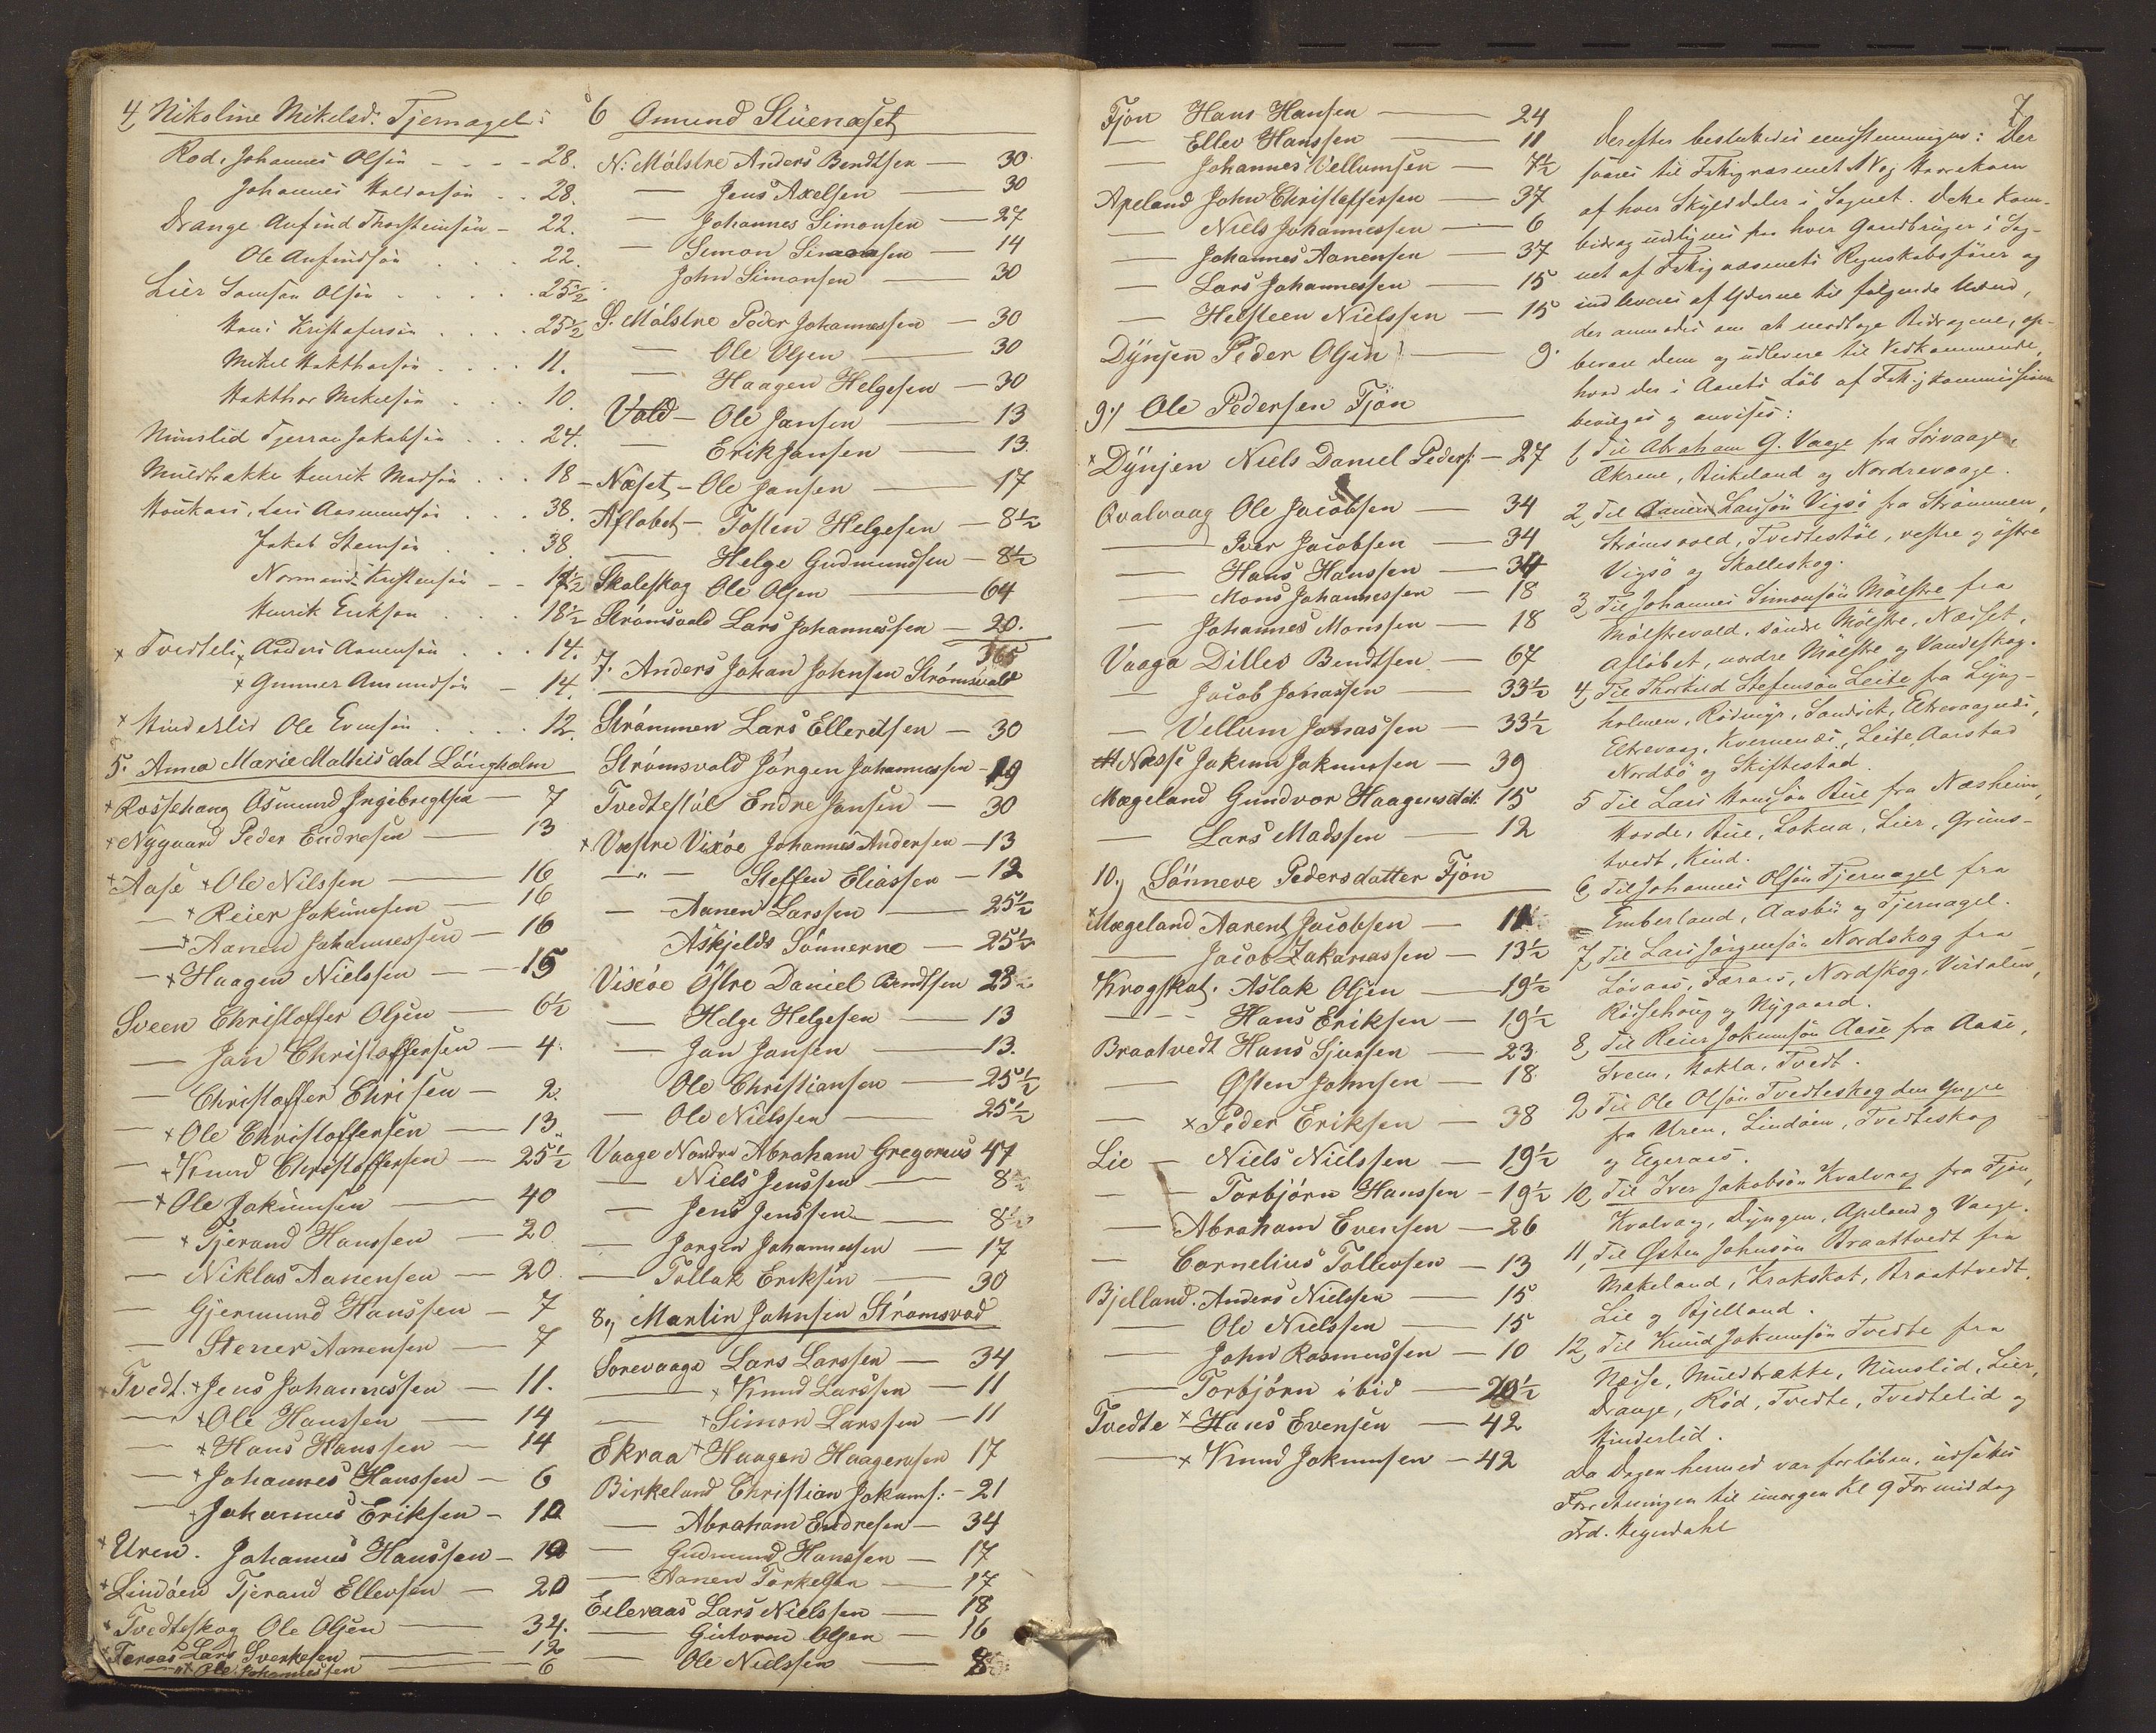 4, Nikoline Mikelsd. Tjernagel:
Rod, Johannes Olsön - - - 28.
Johannes Haldorsön . . 28.
Drange Anfind Thorsteinsön - 22.
Ole Anfindsön . . . 22.
Lier Samson Olsön . . . . . 25½
Hans Kristofersön . . . . 25½
Mikel Hakthorsön . . . . 11.
Hakthor Mikelsön . . . 10.
Nimslid Tjerran Jakobsön . . . 24.
Muldbrække Henrik Madsön . . . 18
Houkaas, Lars Aasmundsön . . . 38.
Jakob Steinsön . . . 38
Normand Kristensön - -
Henrik Eriksön . . . 18½
x Tvedteli, Anders Aanensön . . . 14.
x Gunner Amundsön - 14.
x Hinderlid Ole Evensön . . . . 12.
5. Anna Marie Mathisdat Löngholm
x Rossehaug Osmund Ingebregtsen — 7
x Nygaard Peder Endresen — 13
x Aase x Ole Nilssen — 16
— x Reier Jokumsen — 16
— x Aanen Johannessen — 16
— x Haagen Nielssen — 15
Sveen Christoffer Olsen — 6½
— Jan Christoffersen — 4.
— Christoffer Chrisen — 2.
— x Ole Christoffersen — 13
— x Knud Christoffersen — 25½
— x Ole Jokumsen — 40
— x Tjerand Hanssen — 20
— Niklas Aanensen — 20.
— Gjermund Hanssen — 7
— Stener Aanensen — 7
x Tvedt. x Jens Johannessen — 11.
— x Ole Hanssen — 14
— x Hans Hanssen — 14
— x Johannes Hanssen — 6
— x Johannes Eriksen — 10
x Uren. Johannes Hanssen — 10
x Lindöen Tjerand Ellevsen — 20
x Tvedteskog Ole Olsen — 34.
x Feraas Lars Sverkesen — 12
— x Ole Johannessen — 6
6 Omund Stuenæset
N. Mölstre Anders Bendtsen — 30
— Jens Axelsen — 30
— Johannes Simonsen — 27
— Simon Simonsen — 14
John Simonsen — 30
S. Mölstre Peder Johannessen — 30
— Ole Olsen — 30
— Haagen Helgesen — 30
Vold — Ole Jansen — 13
— Erik Jansen — 13.
— Næset, — Ole Jansen — 17
Afløbet — Tosten Helgesen — 8½
— Helge Gudmundsen — 8½
Skoleskog Ole Olsen — 64
Strömsvold Lars Johannessen — 20.
365
7. Anders Johan Johnsen Strömsvold
Strömmen Lars Ellertsen — 30
Strömsvold Jörgen Johannessen — 19
Tvedtestöl Endre Jansen — 30
x Vestre Vixöe Johannes Andersen — 13
— " — Steffen Eliassen — 12
— Aanen Larssen — 25½
Askjelds Sönnerne — 25½
Vixöe Östre Daniel Bendtsen 23½
— Helge Helgesen — 13
— Jan Jansen — 13.
Ole Christiansen — 25½
— Ole Nielssen — 25½
Vaage Nordre Abraham Gregorius 47
— Niels Jenssen — 8½
— Jens Jenssen — 8½
— Jorgen Johannessen — 17
— Tollak Eriksen — 30
8., Martin Johnsen Strömsvod
Sorevaage Lars Larssen — 34
— x Knud Larssen — 11
— x Simon Larssen — 11
Ekraa x Haagen Haagensen 17
Birkeland Christian Jokums: - 21
— Abraham Endresen — 34
— Gudmund Hanssen — 17
— Aanen Torkelsen — 17
Eilevaas Lars Nielssen — 18
— Gutorm Olsen — 16
— Ole Nielssen — 8
Fjön Hans Hansen — 24
— Ellev Hanssen — 11
— Johannes Vellumsen — 7½
Apeland John Christoffersen — 37
— Niels Johannessen — 6
— Johannes Aanensen — 37
— Lars Johannessen — 15
— Helsteen Nielssen — 15
Dynjen Peder Olsen — 9.
9., Ole Pedersen Fjön
x Dynjen Niels Daniel Peders: — 27
Qvalvaag Ole Jacobsen — 34
— Iver Jacobsen — 34
— Hans Hanssen — 34
— Mons Johannessen — 18
— Johannes Monssen — 18
Vaaga Dilles Bendtsen — 67
— Jacob Jonassen — 33½
— Vellum Jonassen — 33½
Næsse Jokum Jokumsen — 39
Mægeland Gundvor Haagensdat: 15
— Lars Madssen — 12
10., Sönneve Pedersdatter Fjön
x Mægeland Aarent Jacobsen — 11
— Jacob Zakariassen — 13½
Krogskat. Aslak Olsen — 19½
— Hans Eriksen — 19½
Braatvedt Hans Sjursen — 23
— Østen Johnsen — 18
— x Peder Eriksen — 38
Lie — Niels Nielssen — 19½
— Torbjörn Hanssen — 19½
— Abraham Evensen — 26
— Cornelius Tollevsen — 13
Bjelland. Anders Nielssen — 15
— Ole Nielssen — 15
— John Rasmussen — 10
— Torbjörn ibid — 20½
Tvedte x Hans Evensen — 42
— x Knud Jokumsen — 42
7
Derefter besluttedes eenstemmigen: Der
svares til Fattigvæsenet 1 Vog Havrekorn
af hver Skylddaler i Sognet. Dette Kom-
bidrag udlignes paa hver Gaardbruger i Sog-
net af Fattigvæsenets Regnskabsfører og
indleveres af Yderne til følgende Mænd,
der anmodes om at modtage Bidragene, op-
bevare dem og udlevere til Vedkommende,
hvad der i Aarets Løb af Fattigkommissionen
bevilges og anvises:
1, Til Abraham G. Vaage fra Sörvaage,
Ækrene, Birkeland og Nordrevaage.
2, Til Aanen Larsön Vigsö fra Strömmen,
Strömsvold, Tvedtestöl, vestre og östre
Vigsö og Skalleskog.
3, Til Johannes Simonsön Mölstre fra
Mölstrevold, söndre Mölstre, Næset,
Aflöbet, nordre Mölstre og Vandeskog.
4, Til Thorkild Stefensön Leite fra Lyng-
holmen, Rödmyr, Sandvik, Eltrevaagnæs,
Eltrevaag, Kvernenæs, Leite, Aarstad
Nordbö og Skiftestad.
5 Til Lars Hansön Bue fra Næsheim,
Horde, Bue, Lokna, Lier, Grims-
tvedt, Kind.
6, Til Johannes Olsön Tjernagel fra
Emberland, Aasbu og Tjernagel.
7, Til Lars Jörgensön Nordskog fra
Lövaas, Færaas, Nordskog, Virdalen,
Röissehoug og Nygaard.
8, Til Reier Jokumsön Aase fra Aase,
Sveen, Hakla, Tvedt.
9 Til Ole Olsön Tvedteskog den Yngre
fra Uren, Lindöen, Tvedteskog
og Elgeraas.
10, Til Iver Jakobsön Kvalvaag fra Fjön,
Kvalvag, Dyngen, Apeland og Vaage.
11, Til Østen Johnsön Braattvedt fra
Mækeland, Krakskot, Braattvedt,
Lie og Bjelland.
12, Til Knud Jokumsön Tvedte fra
Næsse, Muldbrække, Nimslid, Lier,
Drange, Röd, Tvedte, Tvedtelid og
Hinderlid.
Da Dagen hermed var forløben, udsattes
Forretningen til imorgen Kl 9 Formiddag
Frd. Heyerdahl